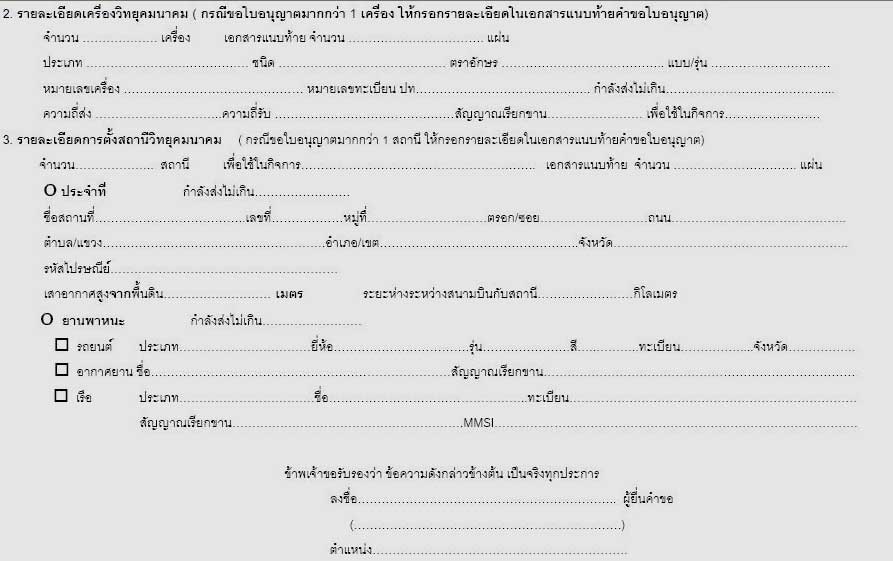 2. รายละเอียดเครื่องวิทยุคมนาคม ( กรณีขอใบอนุญาตมากกว่า 1 เครื่อง ให้กรอกรายละเอียดในเอกสารแนบท้ายคำขอใบอนุญาต)
จำนวน .................. เครื่อง เอกสารแนบท้าย จำนวน .................................. แผ่น
ประเภท ........................................ ชนิด ........................................ ตราอักษร ........................................ แบบ/รุ่น ..............................
หมายเลขเครื่อง ............................................ หมายเลขทะเบียน ปท............................................ กำลังส่งไม่เกิน..........................................
ความถี่ส่ง ................................ความถี่รับ .............................................สัญญาณเรียกขาน........................ เพื่อใช้ในกิจการ........................
3. รายละเอียดการตั้งสถานีวิทยุคมนาคม ( กรณีขอใบอนุญาตมากกว่า 1 สถานี ให้กรอกรายละเอียดในเอกสารแนบท้ายคำขอใบอนุญาต)
จำนวน.................... สถานี เพื่อใช้ในกิจการ.......................................................... เอกสารแนบท้าย จำนวน ............................... แผ่น
O ประจำที่ กำลังส่งไม่เกิน........................
ชื่อสถานที่......................................เลขที่..................หมู่ที่..............................ตรอก/ซอย...........................ถนน..................................................
ตำบล/แขวง........................................................อำเภอ/เขต..................................................จังหวัด...........................................................
รหัสไปรษณีย์.........................................................
เสาอากาศสูงจากพื้นดิน........................... เมตร ระยะห่างระหว่างสนามบินกับสถานี........................กิโลเมตร
O ยานพาหนะ กำลังส่งไม่เกิน.........................
☐ รถยนต์ ประเภท.................................ยี่ห้อ..................................รุ่น......................สี................ทะเบียน..................จังหวัด.................
☐ อากาศยาน ชื่อ...........................................................................สัญญาณเรียกขาน..............................................................................
☐ เรือ ประเภท..................................ชื่อ..................................................ทะเบียน........................................................................
สัญญาณเรียกขาน..........................................................MMSI...........................................................................................
ข้าพเจ้าขอรับรองว่า ข้อความดังกล่าวข้างต้น เป็นจริงทุกประการ
ลงชื่อ................................................................. ผู้ยื่นคำขอ
(...................................................................)
ตำแหน่ง................................................................